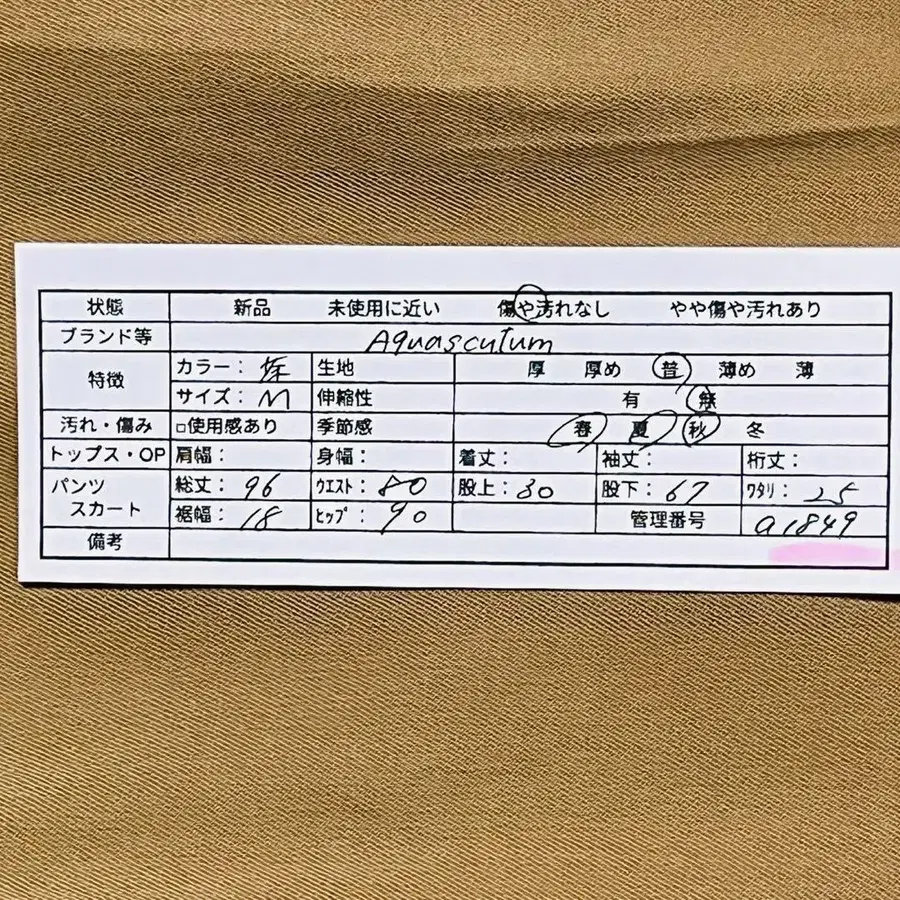 状態 新品 未使用に近い 傷や汚れなし やや傷や汚れあり
ブランド等 Aquascutum
特徴 カラー： 生地 厚 厚め 普 薄め 薄
サイズ：M 伸縮性 有 無
汚れ・傷み □使用感あり 季節感 春 夏 秋 冬
トップス・OP 肩幅： 身幅： 着丈： 袖丈： 裄丈：
パンツ 総丈：96 ウエスト：80 股上：30 股下：67 ワタリ：25
スカート 裾幅：18 ヒップ：90 管理番号 a1849
備考